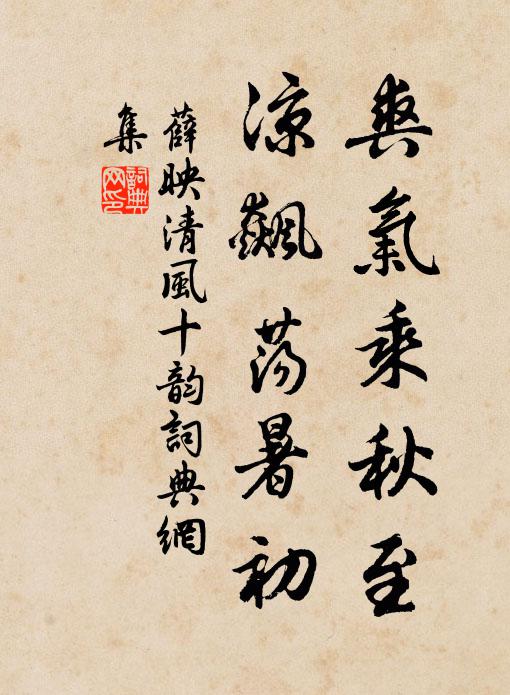 爽氣乘秋至
涼飆蕩暑初
薛映清風十韵詞典網
集
詞典网印